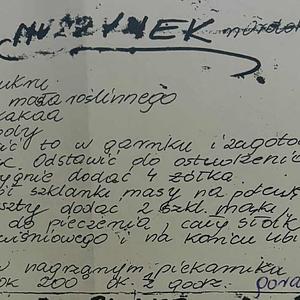 MURZYNEK
ukru
masła roślinnego
kakaa
ody
ić to w garnku i zagoto
Odstawić do ostudzenia
ygnie dodać 4 żółtka
ić szklanki masy na polew
szty dodać 2 szkl. mąki
do pieczenia, cały słoik
wiśniowego i na końcu ubi
w nagrzanym piekarniku
ok 200 ok. 2 godz.